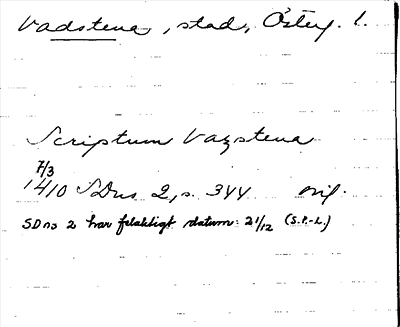 Vadstena, stad, Österg. l.
Scriptum Vazstena
7/3
1410 SDns 2, s. 344 orig.
SDns 2 har felaktigt datum: 21/12 (S.P.-L.)